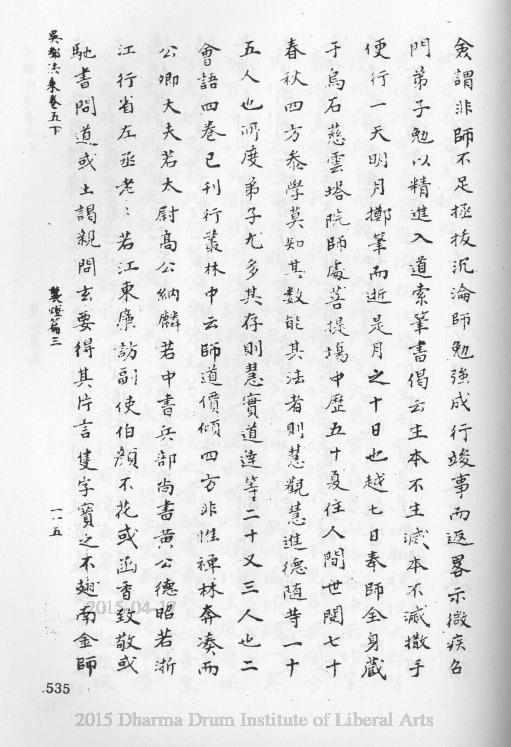 僉謂非師不足極拔沉淪師勉強成行竣事而返畧示微疾召
門弟子勉以精進入道索筆書偈云生本不生滅本不滅撒手
便行一天明月擲筆而逝是月之十日也越七日奉師全身蔵
于烏石慈雲塔院師處菩提場中歷五十夏住人間世閱七十
春秋四方叅學莫知其數能其法者則慧觀慧進德随昔一十
五人也所度弟子尤多其存則慧實道逵等二十又三人也二
會語四卷已刊行叢林中云師道價傾四方非惟禅林奔湊而
公卿大夫若太尉高公納麟若中書兵部尚書黄公德昭若浙
江行省左丞老〻若江東廉訪副使伯顔不花或函香致敬或
馳書問道或土謁親問玄要得其片言隻字寶之不翅南金師
吳都法乘卷五下
篇三
一一五
535
2015-04-17
2015 Dharma Drum Institute of Liberal Arts